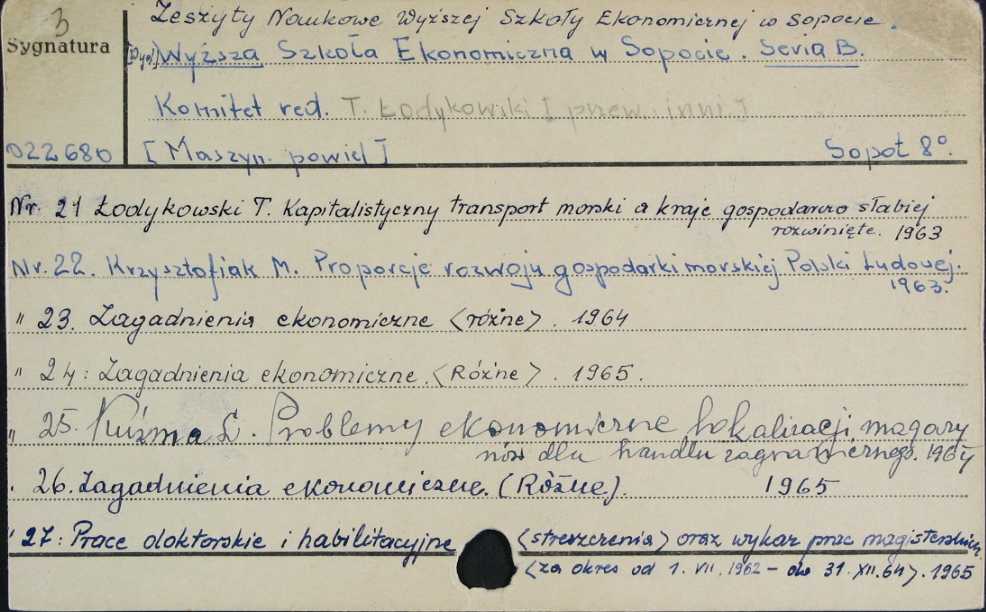 3
Zeszyty Naukowe Wyższej Szkoły Ekonomicznej w Sopocie.
Sygnatura
Wyższa Szkoła Ekonomiczna w Sopocie. Seria B.
Komitet red. T. Łodykowski [przew. inni]
022680 [Maszyn. powiel] Sopot 8°.
Nr. 21 Łodykowski T. Kapitalistyczny transport morski a kraje gospodarczo słabiej
rozwinięte. 1963
Nr. 22. Krzysztofiak M. Proporcje rozwoju gospodarki morskiej Polski Ludowej.
1963.
" 23. Zagadnienia ekonomiczne <różne>. 1964
" 24: Zagadnienia ekonomiczne. <Różne>. 1965.
" 25. Kuźma L. Problemy ekonomiczne lokalizacji magazy
nów dla handlu zagranicznego. 1964
. 26. Zagadnienia ekonomiczne. (Różne). 1965
" 27: Prace doktorskie i habilitacyjne <streszczenia> oraz wykaz prac magisterskich.
<za okres od 1. VII. 1962 - do 31. XII. 64>. 1965